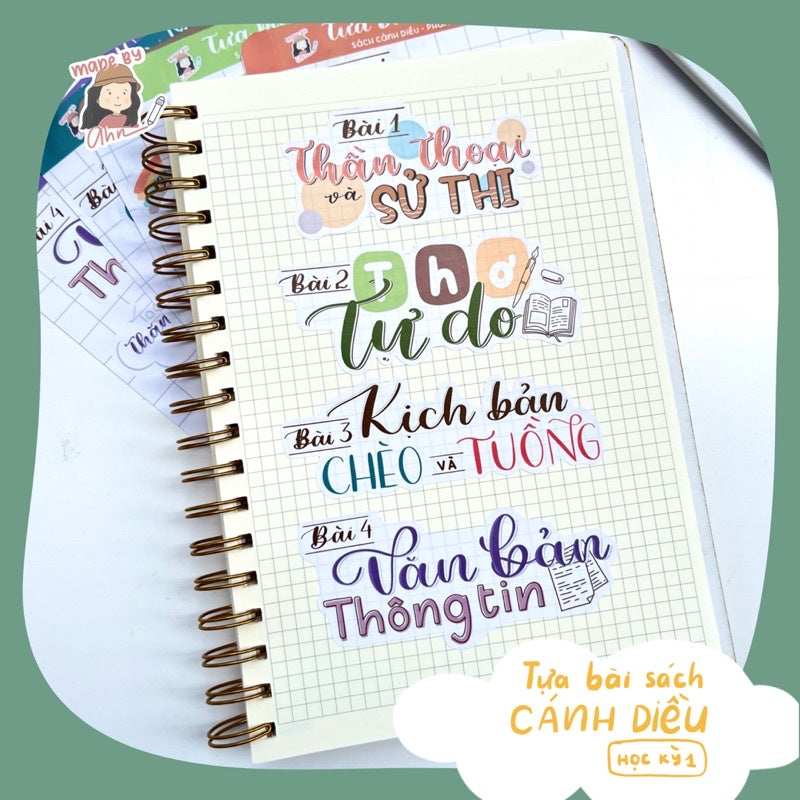 MADE BY
ahn
Tựa
SÁCH CÁNH DIỀU
Bài 1
Thần thoại
và
SỬ THI
Bài 2
Thơ
Tự do
Bài 3
Kịch bản
CHÈO VÀ TUỒNG
Bài 4
Văn bản
Thông tin
Bài 4
Bài
Thần
Tựa bài sách
CÁNH DIỀU
HỌC KỲ 1